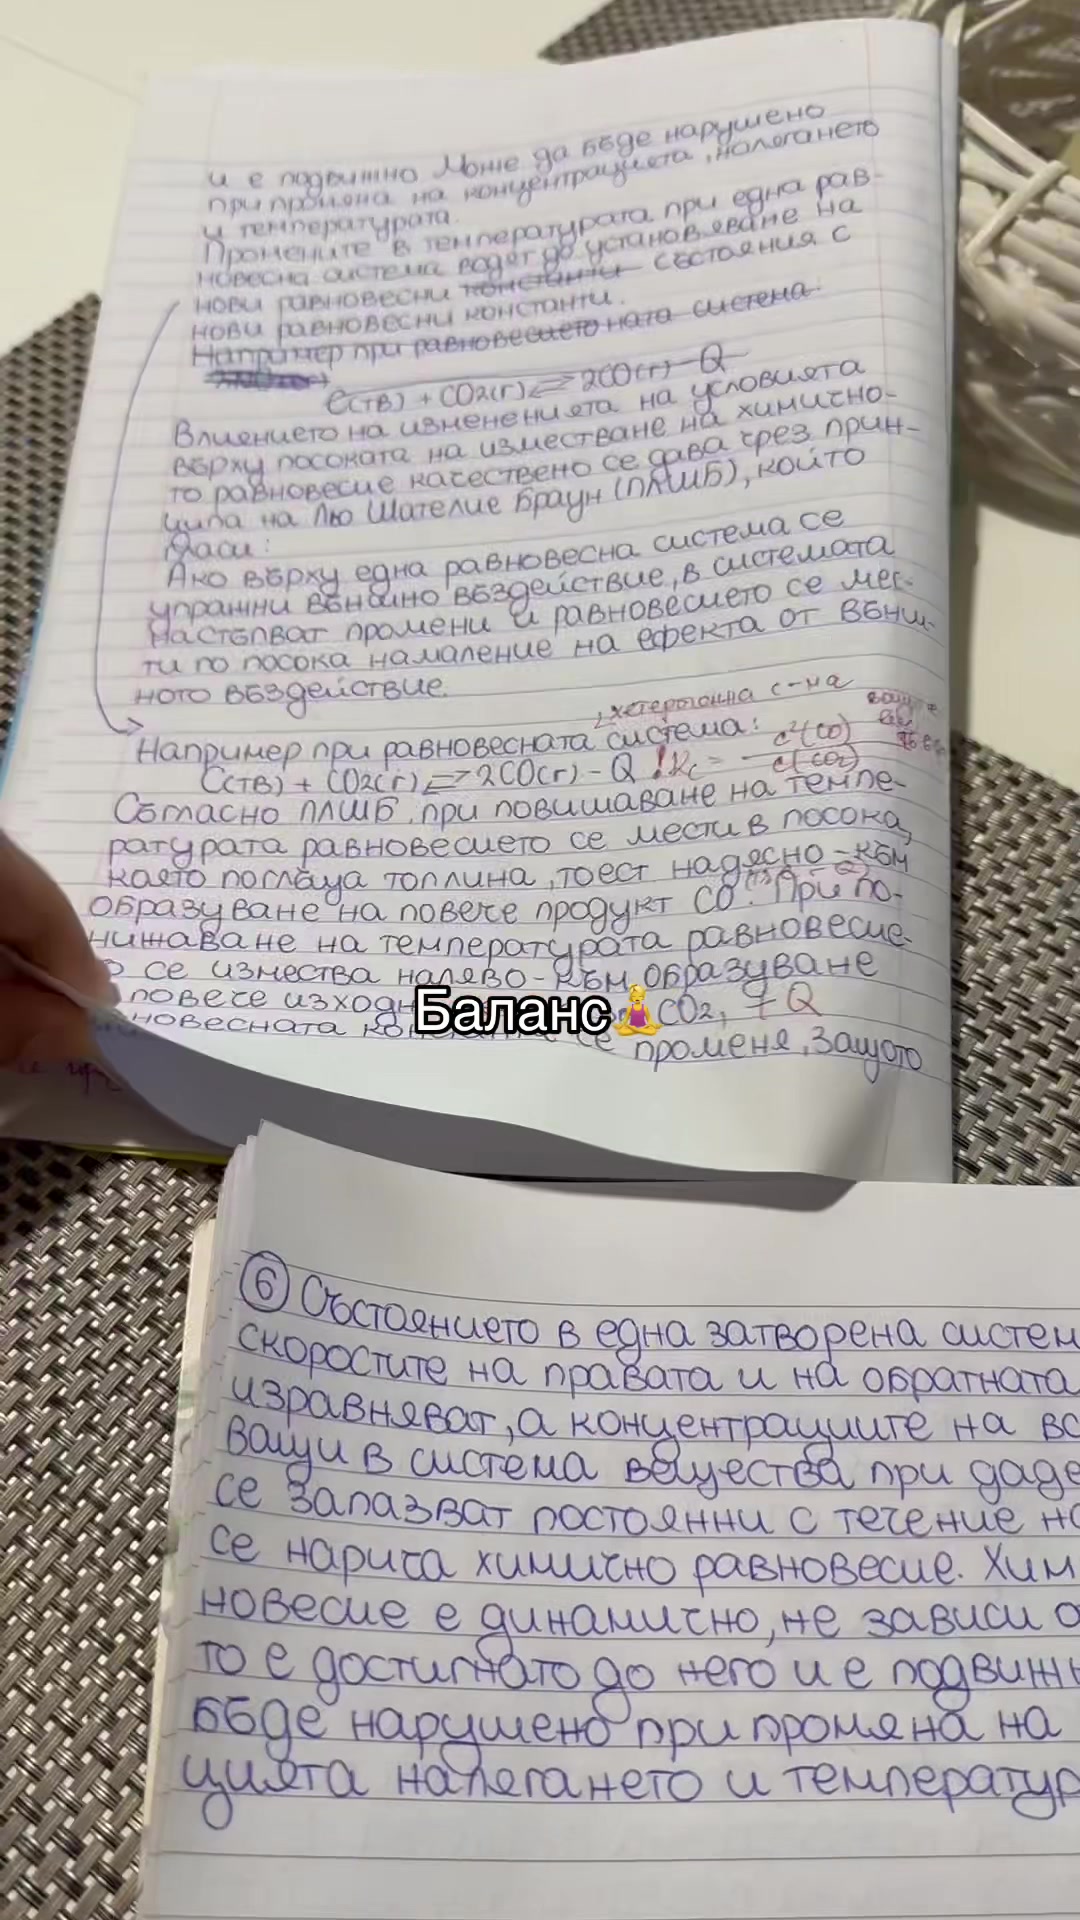 и е подвижно Може да бъде нарушено
при промяна на концентрацията, налягането
и температурата.
Промените в температурата при една рав-
новесна система водят до установяване на
нови равновесни константи състояния с
нови равновесни константи.
Например при равновесието ната система
C(тв) + CO2(г) ⇌ 2CO(г) - Q
Влиението на измененията на условията
върху посоката на изместване на химично-
то равновесие качествено се дава чрез прин-
ципа на Лю Шателие Браун (ПЛШБ), който
гласи:
Ако върху една равновесна система се
упражни външно въздействие, в системата
настъпват промени и равновесието се мес-
ти по посока намаление на ефекта от външ-
ното въздействие.
хетерогенна с-ма
Например при равновесната система:
C(тв) + CO2(г) ⇌ 2CO(г) - Q ! Kc = c²(CO) / c(CO2)
Съгласно ПЛШБ, при повишаване на темпе-
ратурата равновесието се мести в посока,
която поглъща топлина, тоест надясно - към
образуване на повече продукт CO. При по-
нижаване на температурата равновесие-
се измества наляво - към образуване
повече CO2, + Q
новесната се променя, защото
Баланс🧘‍♀️
6 Състоянието в една затворена систем
скоростите на правата и на обратната
изравняват, а концентрациите на вс
ващи в система вещества при даде
се запазват постоянни с течение на
се нарича химично равновесие. Хим
новесие е динамично, не зависи о
то е достигнато до него и е подвижн
бъде нарушено при промяна на
цията налягането и температур